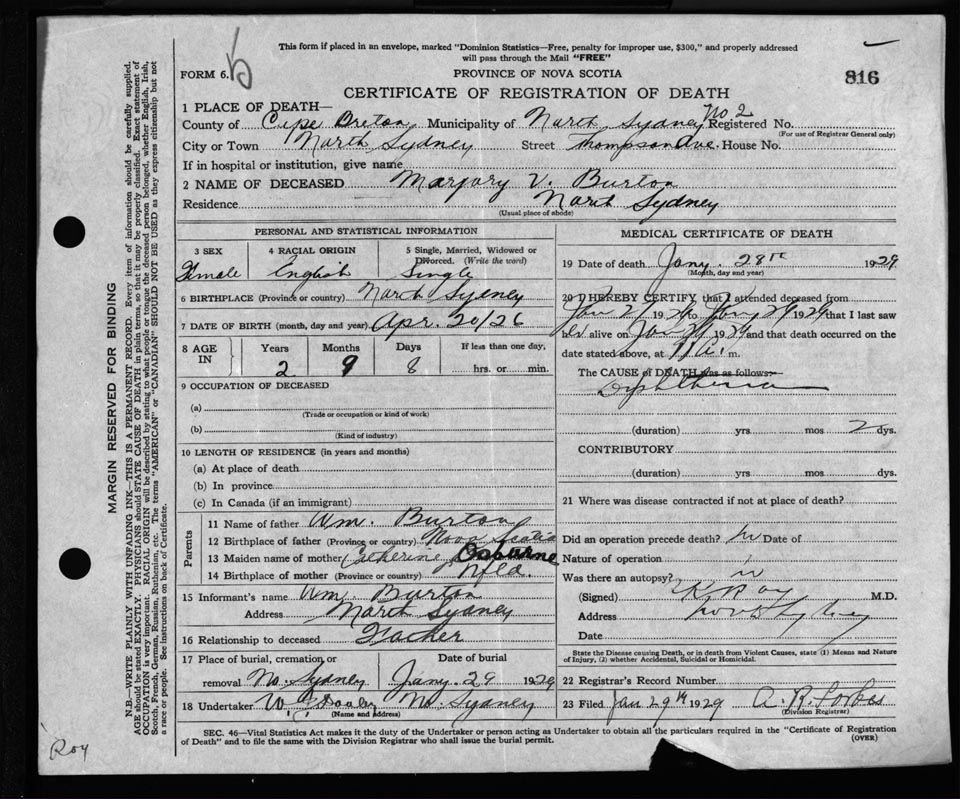 This form if placed in an envelope, marked "Dominion Statistics—Free, penalty for improper use, $300," and properly addressed
will pass through the Mail "FREE"
FORM 6.
PROVINCE OF NOVA SCOTIA
816
CERTIFICATE OF REGISTRATION OF DEATH
1 PLACE OF DEATH—
County of Cape Breton Municipality of North Sydney No 2 Registered No.
(For use of Registrar General only)
City or Town North Sydney Street Thompson Ave. House No.
If in hospital or institution, give name
2 NAME OF DECEASED Marjory V. Burton
Residence North Sydney
(Usual place of abode)
PERSONAL AND STATISTICAL INFORMATION
3 SEX 4 RACIAL ORIGIN 5 Single, Married, Widowed or
Divorced. (Write the word)
Female English Single
6 BIRTHPLACE (Province or country) North Sydney
7 DATE OF BIRTH (month, day and year) Apr. 20/26
8 AGE IN Years Months Days If less than one day,
2 9 8 hrs. or min.
9 OCCUPATION OF DECEASED
(a)
(Trade or occupation or kind of work)
(b)
(Kind of industry)
10 LENGTH OF RESIDENCE (in years and months)
(a) At place of death
(b) In province
(c) In Canada (if an immigrant)
Parents
11 Name of father Wm. Burton
12 Birthplace of father (Province or country) Nova Scotia
13 Maiden name of mother Catherine Osburne
14 Birthplace of mother (Province or country) Nfld.
15 Informant's name Wm. Burton
Address North Sydney
16 Relationship to deceased Father
17 Place of burial, cremation or Date of burial
removal No. Sydney Jany. 29 1929
18 Undertaker W. No. Sydney
(Name and address)
MEDICAL CERTIFICATE OF DEATH
19 Date of death Jany. 28th 1929
(Month, day and year)
20 I HEREBY CERTIFY that I attended deceased from
Jan 27 1929 to Jan 29 1929 that I last saw
alive on Jan 1929 and that death occurred on
date stated above, at 11 a. m.
The CAUSE of DEATH was as follows:
Diphtheria
(duration) yrs. mos 2 dys.
CONTRIBUTORY
(duration) yrs. mos dys.
21 Where was disease contracted if not at place of death?
Did an operation precede death? Date of
Nature of operation
Was there an autopsy?
(Signed) Roy M.D.
Address North Sydney
Date
State the Disease causing Death, or in death from Violent Causes, state (1) Means and Nature
of Injury, (2) whether Accidental, Suicidal or Homicidal.
22 Registrar's Record Number
23 Filed Jan 29th 1929 A. R. Forbes
(Division Registrar)
SEC. 46—Vital Statistics Act makes it the duty of the Undertaker or person acting as Undertaker to obtain all the particulars required in the "Certificate of Registration
of Death" and to file the same with the Division Registrar who shall issue the burial permit.
(OVER)
MARGIN RESERVED FOR BINDING
N.B.—WRITE PLAINLY WITH UNFADING INK—THIS IS A PERMANENT RECORD. Every item of information should be carefully supplied.
AGE should be stated EXACTLY. PHYSICIANS should STATE CAUSE OF DEATH in plain terms, so that it may be properly classified. Exact statement of
OCCUPATION is very important. RACIAL ORIGIN will be described by stating to what people or tongue the deceased person belonged, whether English, Irish,
Scotch, French, German, Russian, Ruthenian, etc. The terms "AMERICAN" or "CANADIAN" SHOULD NOT BE USED as they express citizenship but not
a race or people. See instructions on back of Certificate.
Roy